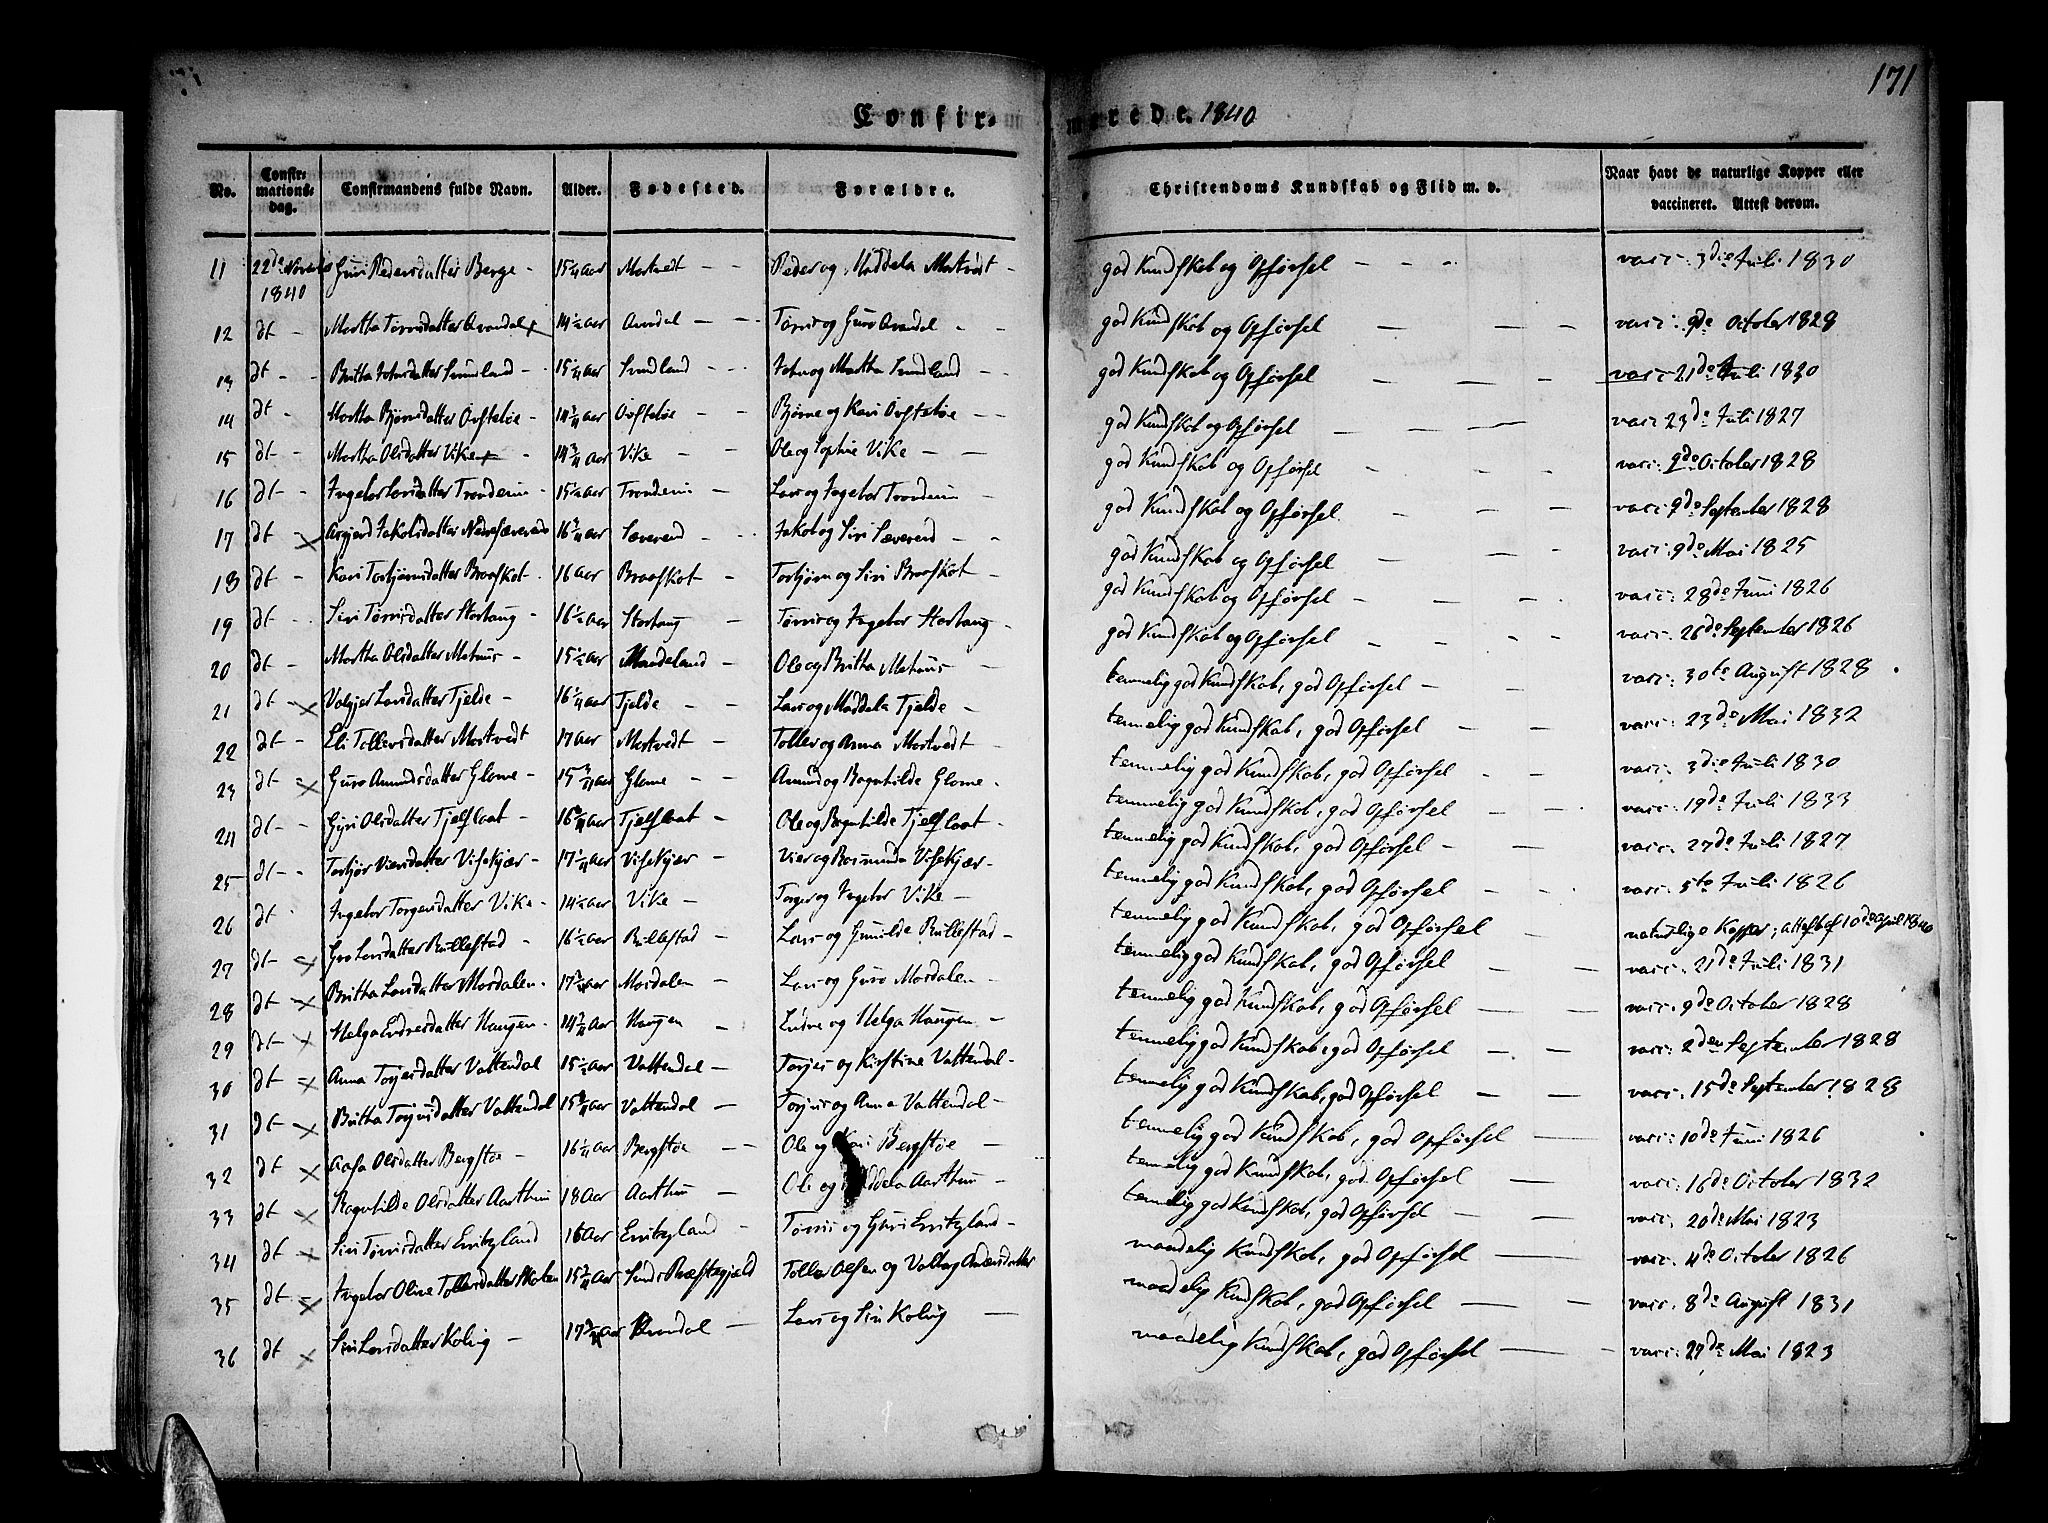 171
Confirmerede. 1840
No. Confirmationsdag. Confirmandens fulde Navn. Alder. Fødested. Forældre. Christendoms Kundskab og Flid m. v. Naar havt de naturlige Kopper eller vaccineret. Attest derom.
11 22de Novemb 1840 Guri Pedersdatter Berge - Mortvedt - - Peder og Maddela Mortvedt - god Kundskab og Opførsel - - - vacc: 3die Juli 1830
12 dt - Martha Tørrisdatter Qvandal 14 1/2 Aar - - Tørris og Guro - - god Kundskab og Opførsel - - - vacc: 9de October 1828
13 dt - - Britha Johnsdatter Sundland - 15 Aar Sundland - - John og Martha Sundland - god Kundskab og Opførsel - - - vacc 21de Juli 1830
14 dt - Martha Bjørnsdatter - 14 Aar - Bjørne og Kari - - god Kundskab og Opførsel - - - vacc 23de Juli 1827
15 dt - Martha Olsdatter Vike - 14 3/4 Aar Vike - Ole og Sophie Vike - - god Kundskab og Opførsel - - - vacc: 9de October 1828
16 dt - Ingebor Larsdatter - 15 1/2 Aar - Lars og Ingebor - god Kundskab og Opførsel - - - vacc: 9de September 1828
17 dt - x Jakobsdatter 16 Aar Sæverend - - Jakob og Siri Sæverend - - god Kundskab og Opførsel - - - vacc: 9de Mai 1825
18 dt - Kari Torbjørnsdatter Braaskot - 16 Aar Braaskot - Torbjørn og Siri Braaskot - god Kundskab og Opførsel - - - vacc: 28de Juni 1826
19 dt - Siri Tørrisdatter Storhaug - 16 1/2 Aar Storhaug - Tørris og Ingebor Storhaug - god Kundskab og Opførsel - - - vacc: 26de September 1826
20 dt - Martha Olsdatter - 15 1/2 Aar - Ole og Britha - - temmelig god Kundskab, god Opførsel - - vacc: 30te August 1828
21 dt - x Larsdatter Tjelde - 16 Aar Tjelde - - Lars og Maddela Tjelde - temmelig god Kundskab, god Opførsel - - vacc: 23de Mai 1832
22 dt - Eli Tollersdatter Mortvedt 17 Aar Mortvedt - Toller og Anna Mortvedt - temmelig god Kundskab, god Opførsel - - vacc: 3die Juli 1830
23 dt - x Guro Amundsdatter Glome - 15 Aar Glome - - Amund og Ragnhilde Glome - temmelig god Kundskab, god Opførsel - - vacc: 19de Juli 1833
24 dt - - Olsdatter Tjelflaat - 16 Aar Tjelflaat - Ole og Ragnhilde Tjelflaat - temmelig god Kundskab, god Opførsel - - vacc: 27de Juli 1827
25 dt - - - 17 Aar - - temmelig god Kundskab, god Opførsel - - vacc: 5te Juli 1826
26 dt Ingebor Torgersdatter Vike - 14 1/2 Aar Vike - Torger og Ingebor Vike - temmelig god Kundskab, god Opførsel - naturlige Kopper; attest af 10de April 1840
27 dt - x Gro Larsdatter Rullestad - 16 1/2 Aar Rullestad - Lars og Gunilde Rullestad - temmelig god Kundskab, god Opførsel - - vacc: 21de Juli 1831
28 dt - x Britha Larsdatter Mosdalen - 17 Aar Mosdalen - Lars og Guro Mosdalen - temmelig god Kundskab, god Opførsel - - vacc: 9de October 1828
29 dt - x Helga Endresdatter Haugen - 14 Aar Haugen - Endre og Helga Haugen - temmelig god Kundskab, god Opførsel - - vacc: 2den September 1828
30 dt - x Anna Torjersdatter Vattendal 15 1/2 Aar Vattendal - og Kirstine Vattendal - temmelig god Kundskab, god Opførsel - - vacc: 15de September 1828
31 dt - x Britha Vattendal 15 Aar Vattendal - og Anna Vattendal - temmelig god Kundskab, god Opførsel - - vacc: 10de Juni 1826
32 dt x Aasa Olsdatter Bergstøe - 16 Aar Bergstøe - Ole og Kari Bergstøe - temmelig god Kundskab, god Opførsel - - vacc: 16de October 1832
33 dt x Ragnhilde Olsdatter Aarthun 18 Aar Aarthun - Ole og Aarthun - temmelig god Kundskab, god Opførsel - - vacc: 20de Mai 1823
34 dt x Siri Tørrisdatter 16 Aar - Tørris og Guri - maadelig Kundskab, god Opførsel - - vacc: 4de October 1826
35 dt - x Ingebor Oline Tollersdatter 15 Aar Sunds Præstegjæld Toller Olsen og maadelig Kundskab, god Opførsel - - vacc: 8de August 1831
36 dt x Siri Larsdatter Kolrig - 17 Aar - Lars og Siri Kolrig - maadelig Kundskab, god Opførsel - - vacc: 27de Mai 1823